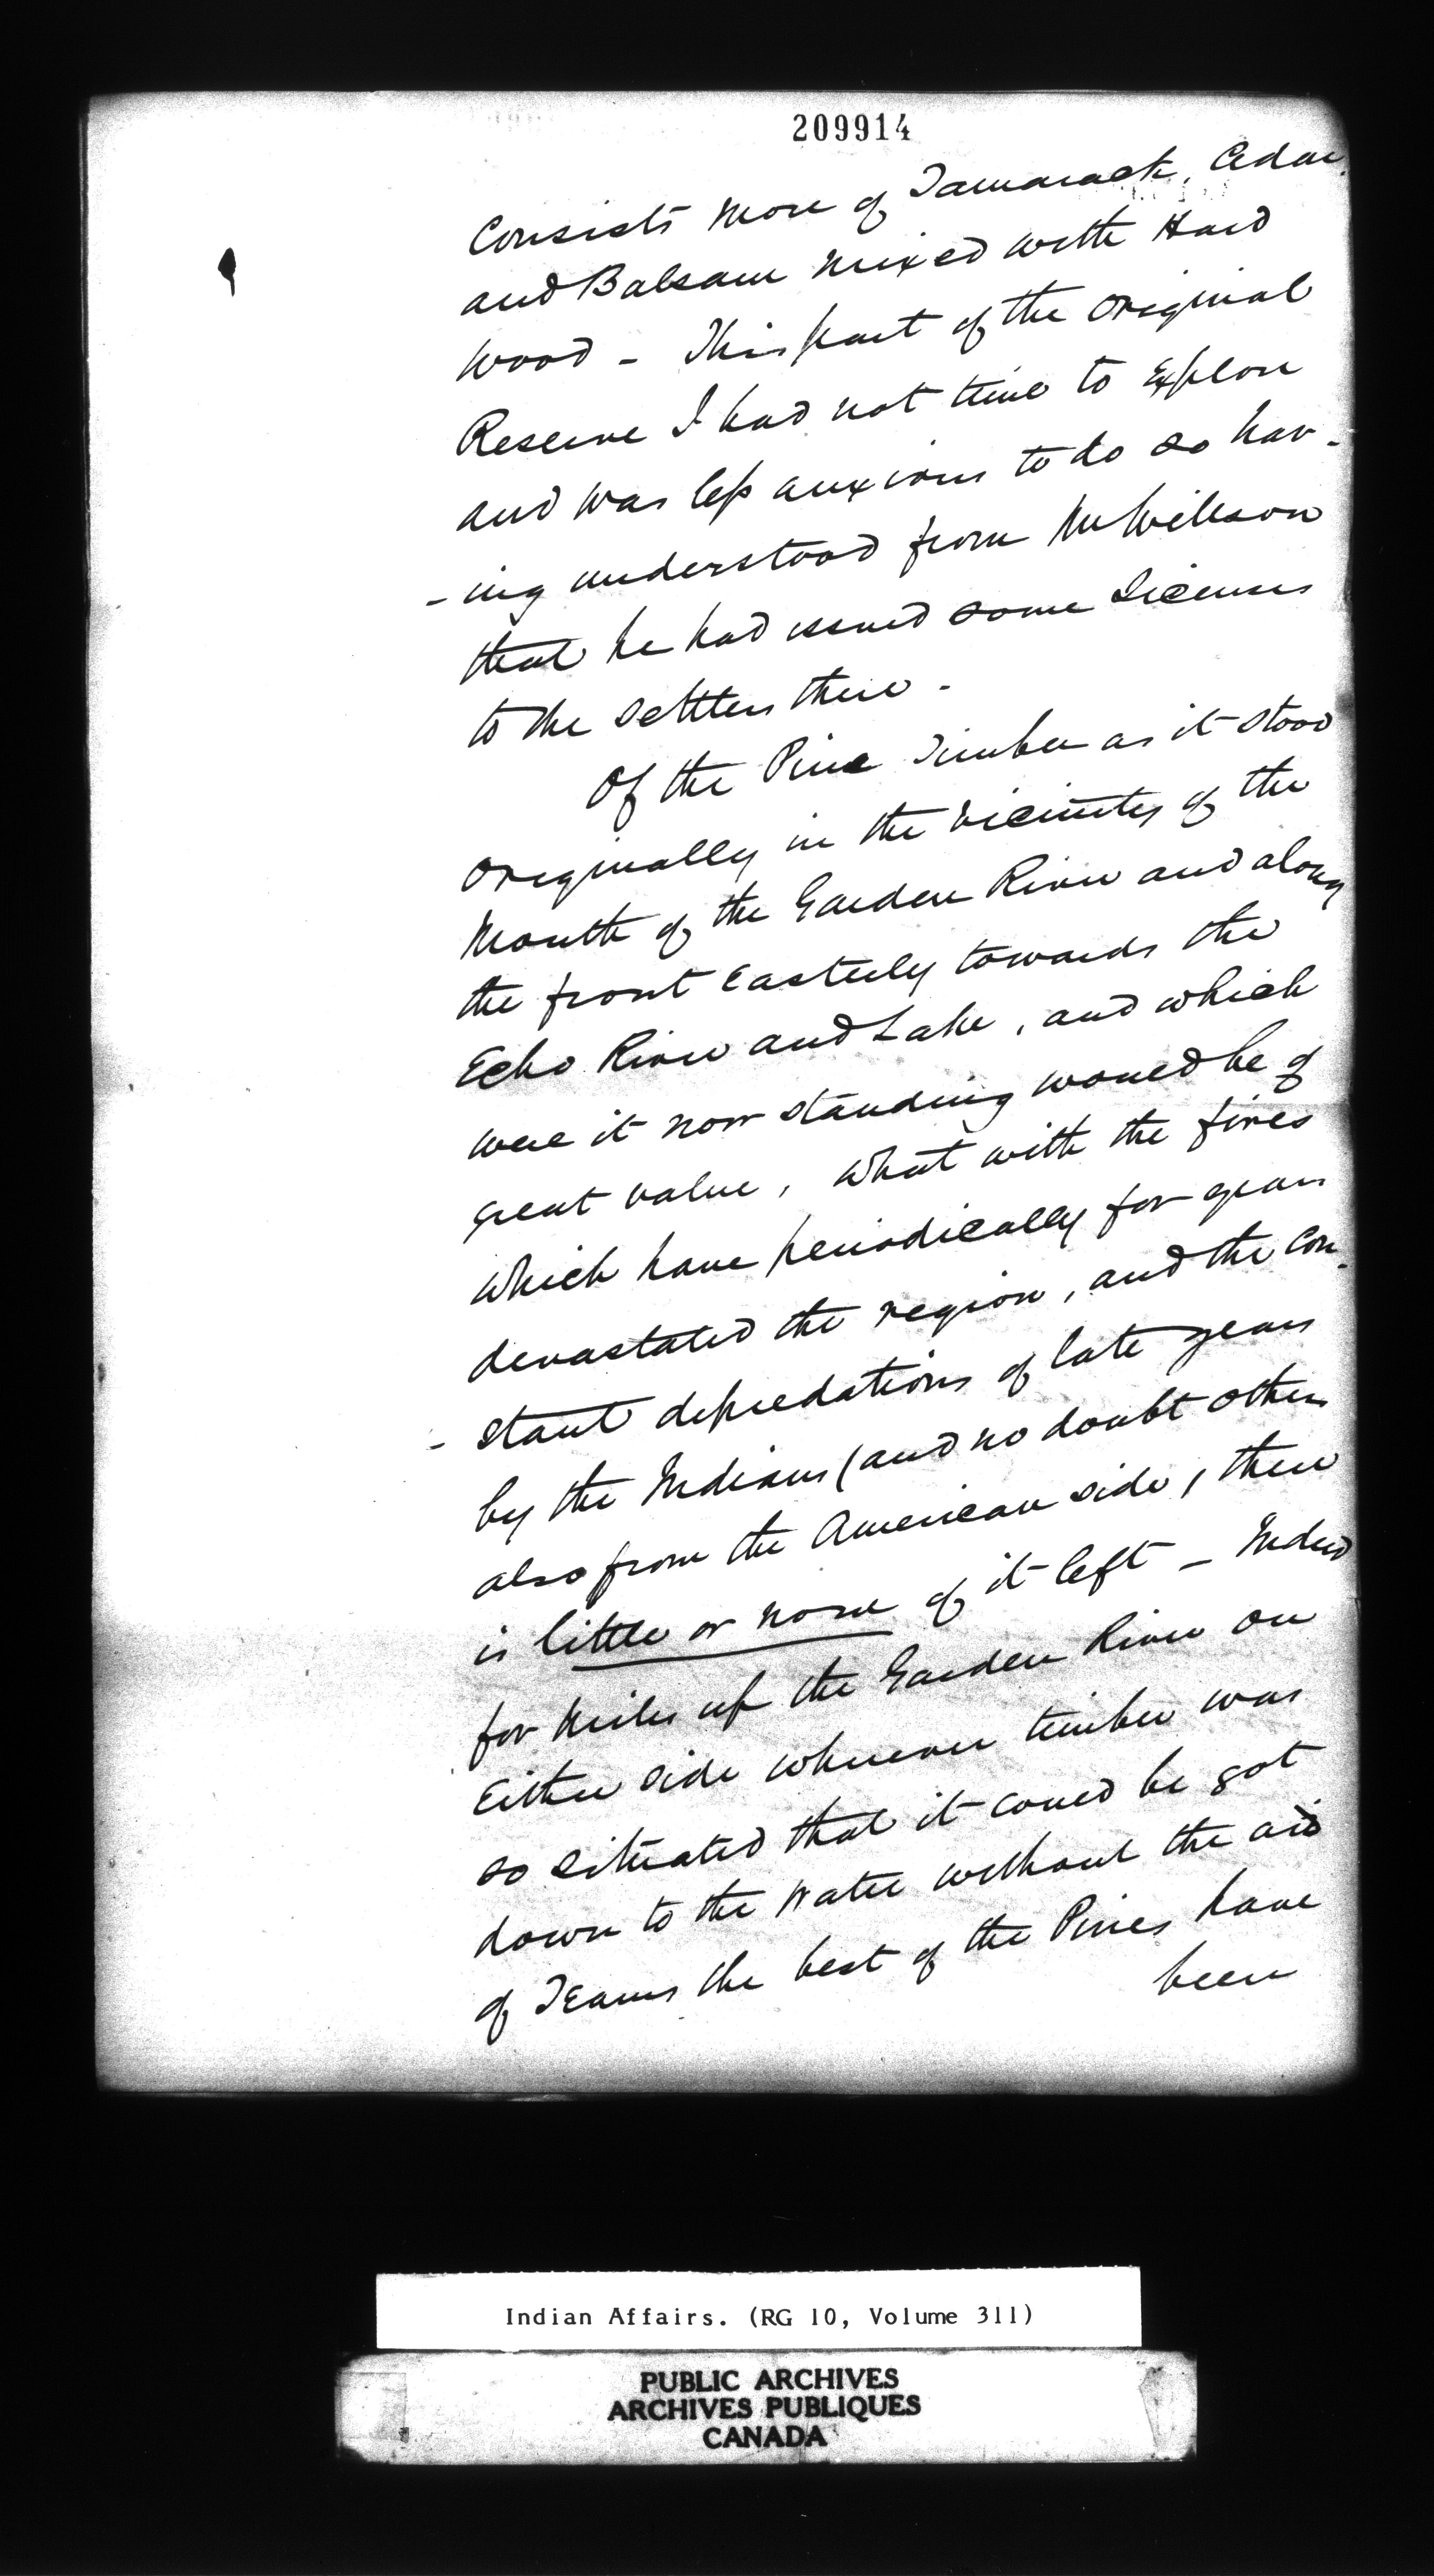 209914
Consists more of Tamarack, Cedar
and Balsam mixed with Hard
wood - This part of the original
Reserve I had not time to explore
and was less anxious to do so hav-
-ing understood from Mr Willson
that he had issued some Licenses
to the settlers there -
Of the Pine Timber as it stood
originally in the vicinity of the
Mouth of the Garden River and along
the front Easterly towards the
Echo River and Lake, and which
were it now standing would be of
great value, what with the fires
which have periodically for years
devastated the region, and the con-
-stant depredations of late years
by the Indians (and no doubt others
also from the American side, there
is little or none of it left - Indeed
for miles up the Garden River on
Either side wherever timber was
so situated that it could be got
down to the water without the aid
of Teams the best of the Pines have
been
Indian Affairs. (RG 10, Volume 311)
PUBLIC ARCHIVES
ARCHIVES PUBLIQUES
CANADA